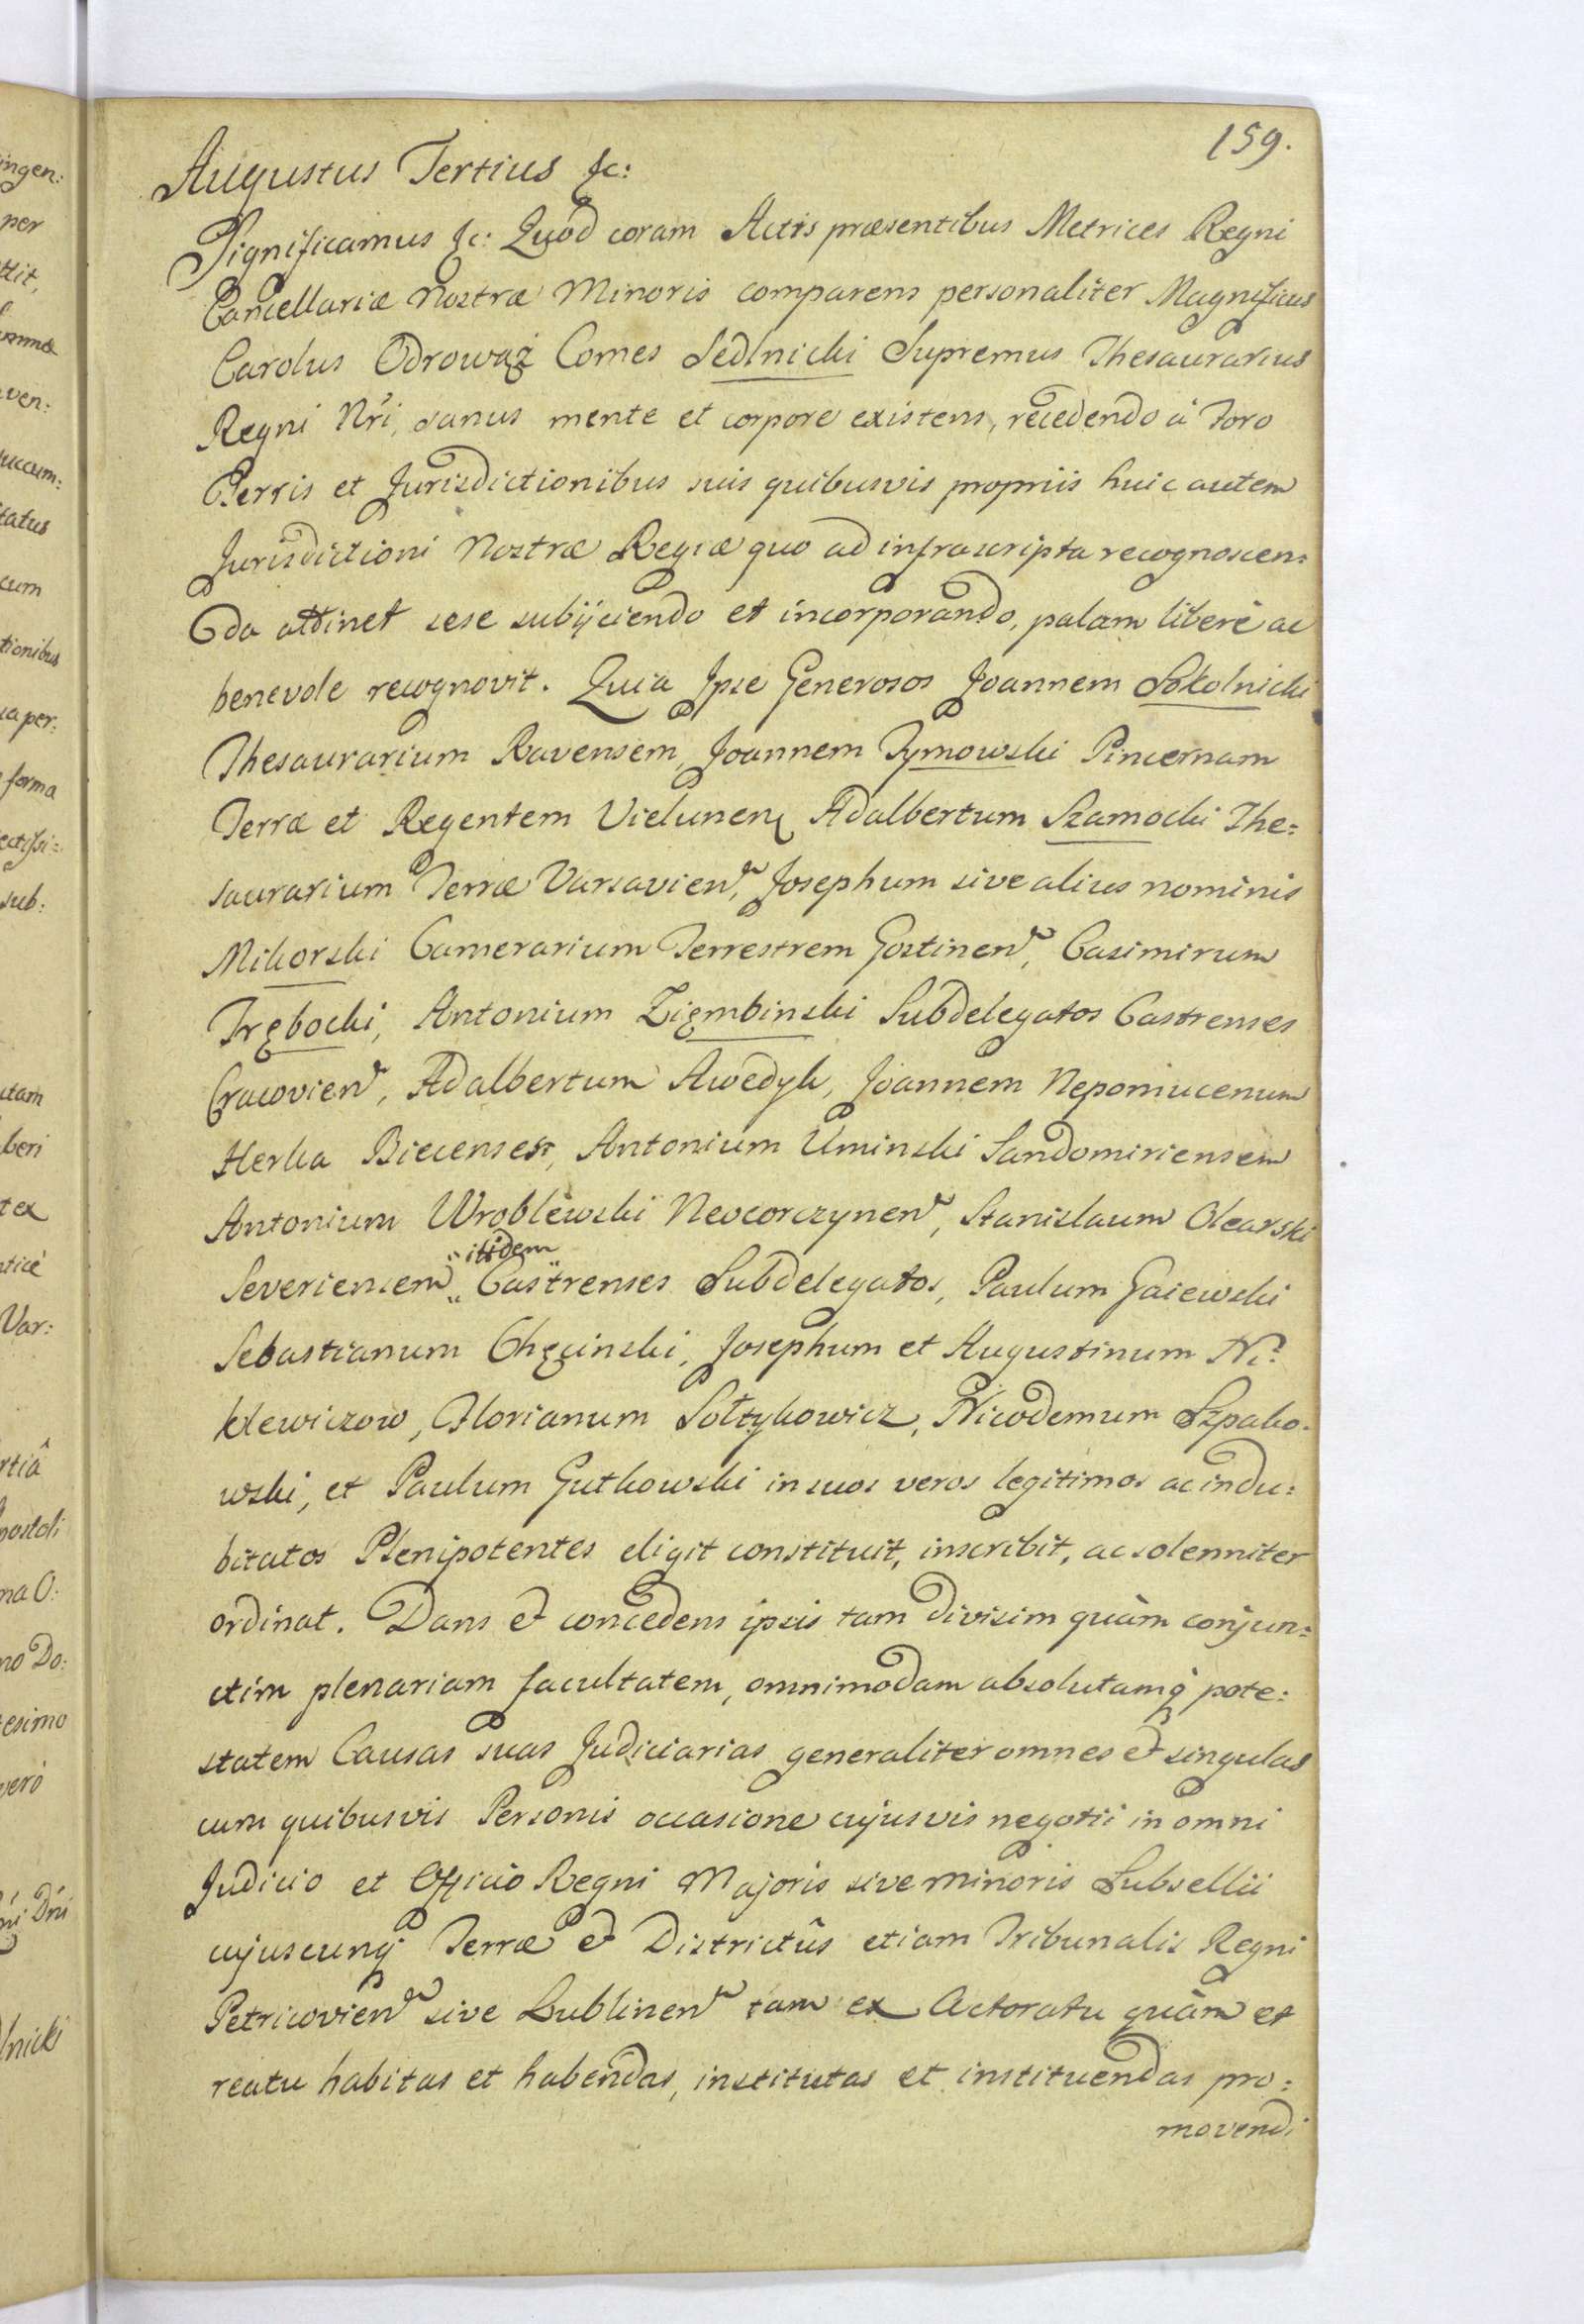 159.
Augustus Tertius &c:
Significamus &c: Quod coram Actis præsentibus Metrices Regni
Cancellariæ Nostræ Minoris comparens personaliter Magnificus
Carolus Odrowąż Comes Sedlnicki Supremus Thesaurarius
Regni Nri, sanus mente et corpore existens, recedendo à Foro
Terris et Jurisdictionibus suis quibusvis propriis huic autem
Jurisdictioni Nostræ Regiæ quo ad infrascripta recognoscen=
da attinet sese subijciendo et incorporando, palam liberè ac
benevole recognovit. Quia Ipse Generosos Joannem Sokolnicki
Thesaurarium Ravensem, Joannem Tymowski Pincernam
Terræ et Regentem Vielunen, Adalbertum Szamocki The=
saurarium Terræ Varsavien, Josephum sive alius nominis
Mikorski Camerarium Terrestrem Gostinen, Casimirum
Trębocki, Antonium Ziębinski Subdelegatos Castrenses
Cracovien, Adalbertum Awedyk, Joannem Nepomucenum
Herka Biecenses, Antonium Uminski Sandomiriensem
Antonium Wroblewski Neocorczynen, Stanislaum Olearski
itidem
Severiensem Castrenses Subdelegatos, Paulum Gaiewski
Sebastianum Chęcinski, Josephum et Augustinum Ni=
klewiczow, Florianum Sołtykowicz, Nicodemum Szpako=
wski, et Paulum Gutkowski in suos veros legitimos ac indu=
bitatos Plenipotentes eligit constituit, inscribit, ac solenniter
ordinat. Dans et concedens ipsis tam divisim quàm conjun=
ctim plenariam facultatem, omnimodam absolutamq pote=
statem Causas suas Judiciarias generaliter omnes et singulas
cum quibusvis Personis occasione cujusvis negotii in omni
Judicio et Officio Regni Majoris sive minoris Subsellii
cujuscunq Terræ et Districtûs etiam Tribunalis Regni
Petricovien sive Lublinen tam ex Actoratu quàm et
reatu habitas et habendas, institutas et instituendas pro=
movendi